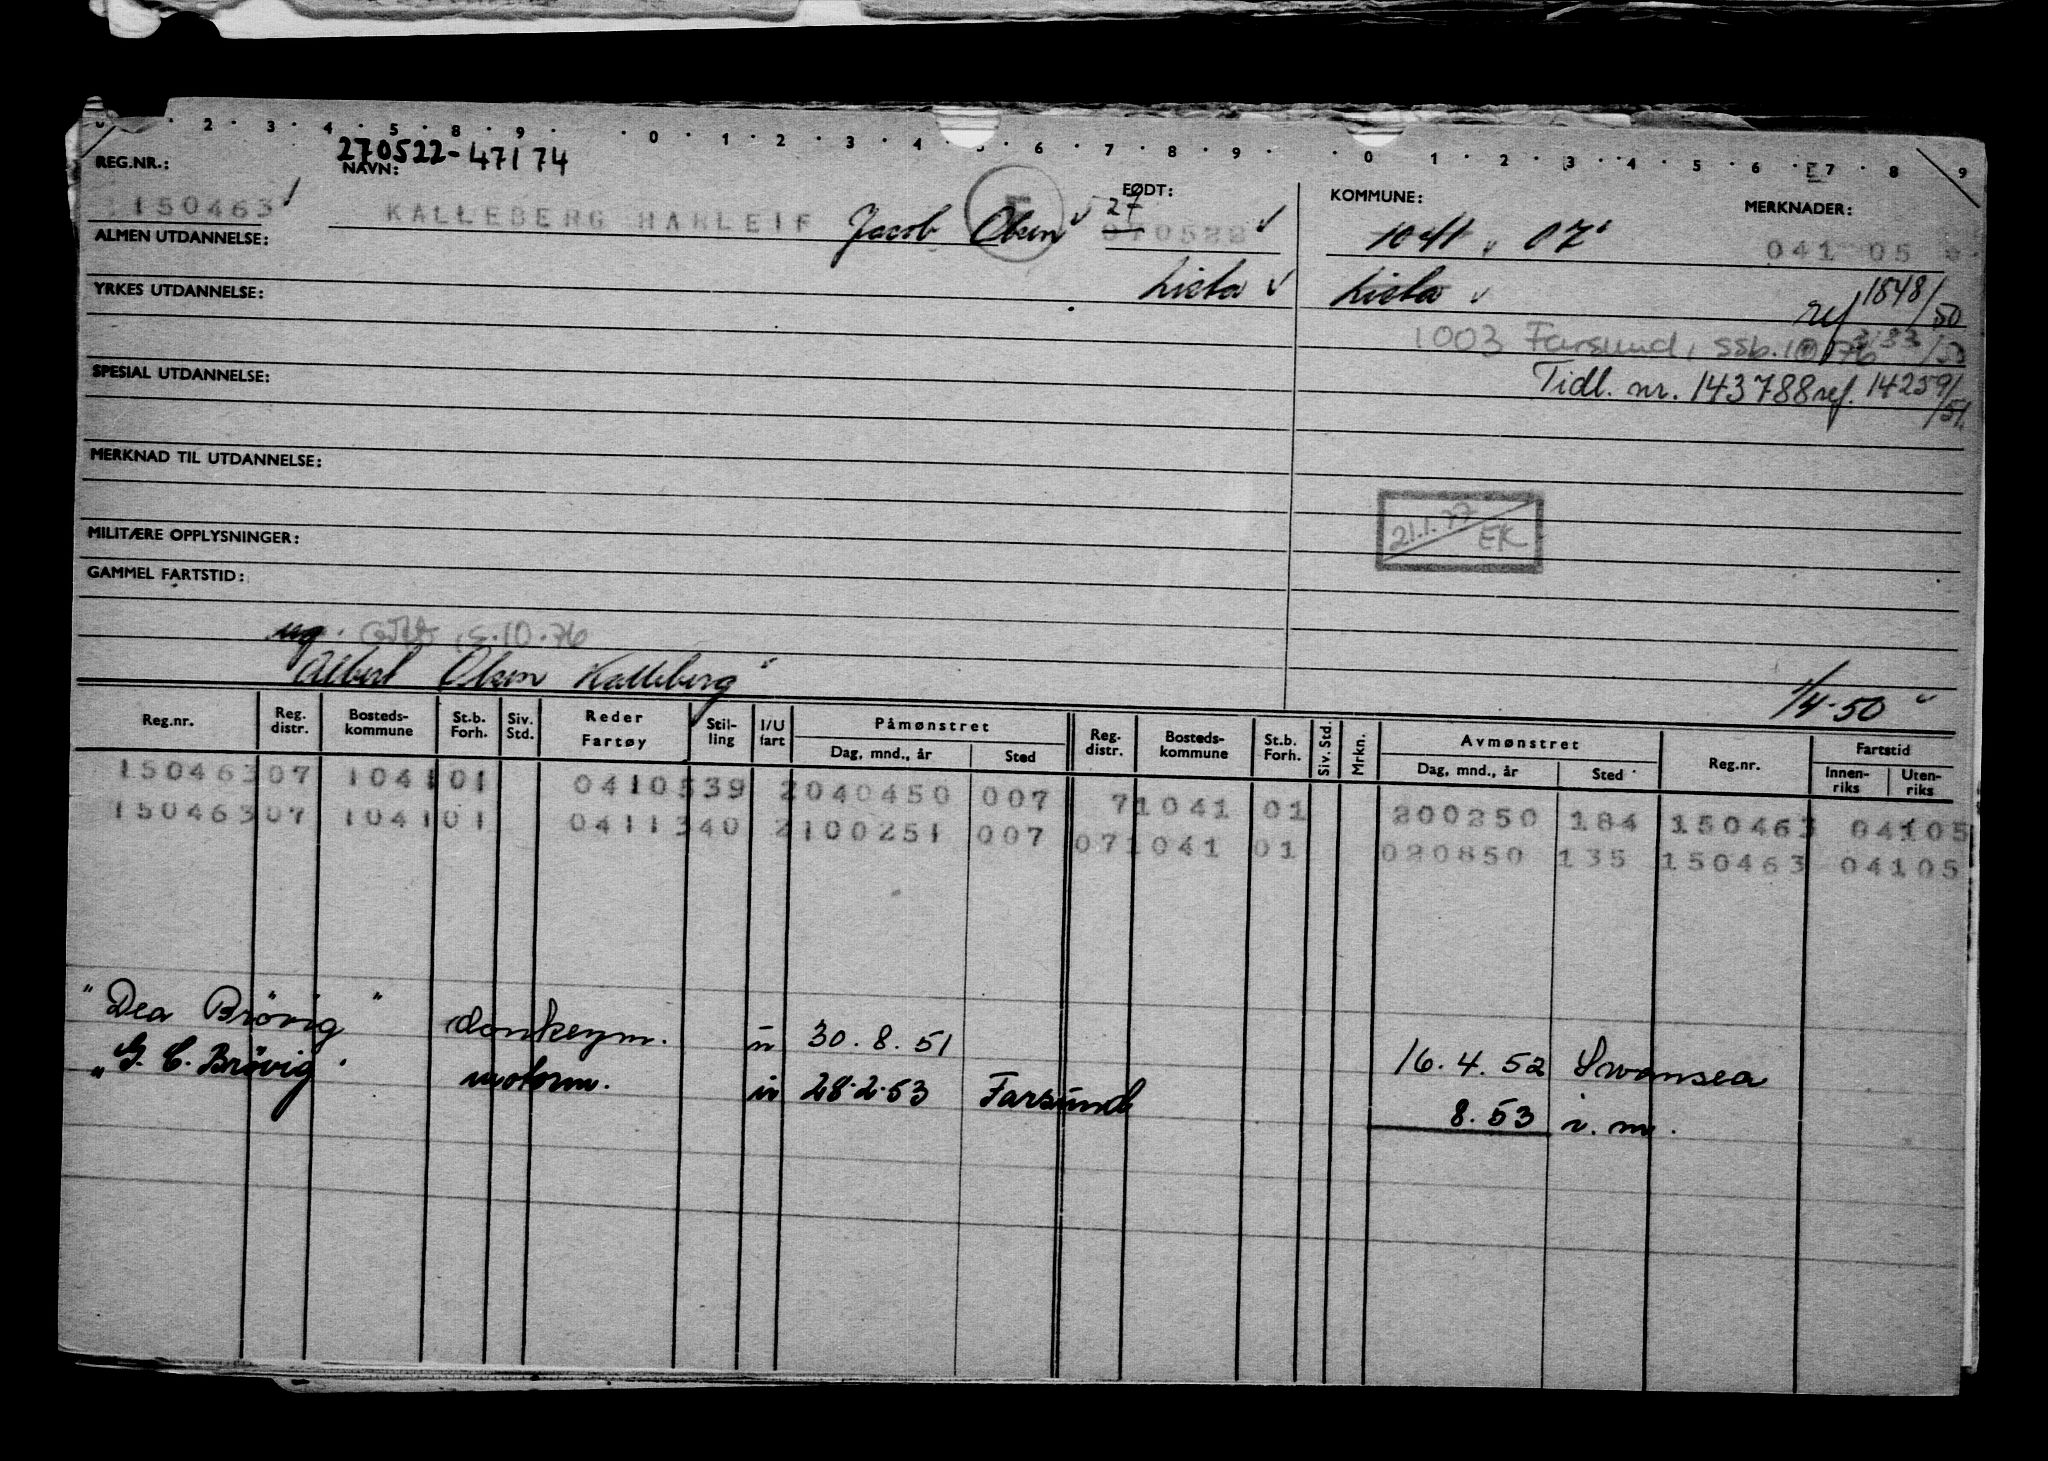 2 . 3 . 4 . 5 . 8 . 9 . . 0 . 1 . 2 . 3 . 4 . 5 . 6 . 7 . 8 . 9 . . 0 . 1 . 2 . 3 . 4 . 5 . 6 . 7 . 8 . 9
270522-47174
REG.NR.: NAVN: FØDT: KOMMUNE: MERKNADER:
150463 KALLEBERG HARLEIF Jacob Olsen 27 070522 1041 07 041 05
ALMEN UTDANNELSE:
Lista Lista
YRKES UTDANNELSE: ref 1848/50
1003 Farsund, ssb. 10 76
SPESIAL UTDANNELSE: Tidl. nr. 143788 ref. 14259/51
MERKNAD TIL UTDANNELSE:
21.1.77 EK
MILITÆRE OPPLYSNINGER:
GAMMEL FARTSTID:
ug. 5.10.76
Albert Olsen Kalleberg 1/4-50
Reg.nr. Reg. distr. Bosteds-kommune St.b. Forh. Siv. Std. Reder Fartøy Stil-ling I/U fart Påmønstret Dag, mnd., år Sted Reg. distr. Bosteds-kommune St.b. Forh. Siv. Std. Mrkn. Avmønstret Dag, mnd., år Sted Reg.nr. Fartstid Innen-riks Uten-riks
150463 07 1041 01 0410539 2 040450 007 7 1041 01 200250 184 150463 04105
150463 07 1041 01 0411340 2 100251 007 07 1041 01 020850 135 150463 04105
"Dea Brövig" donkeym. u 30.8.51 16.4.52 Swansea
"G. C. Brövig" motorm. u 28.2.53 Farsund 8.53 i.m.